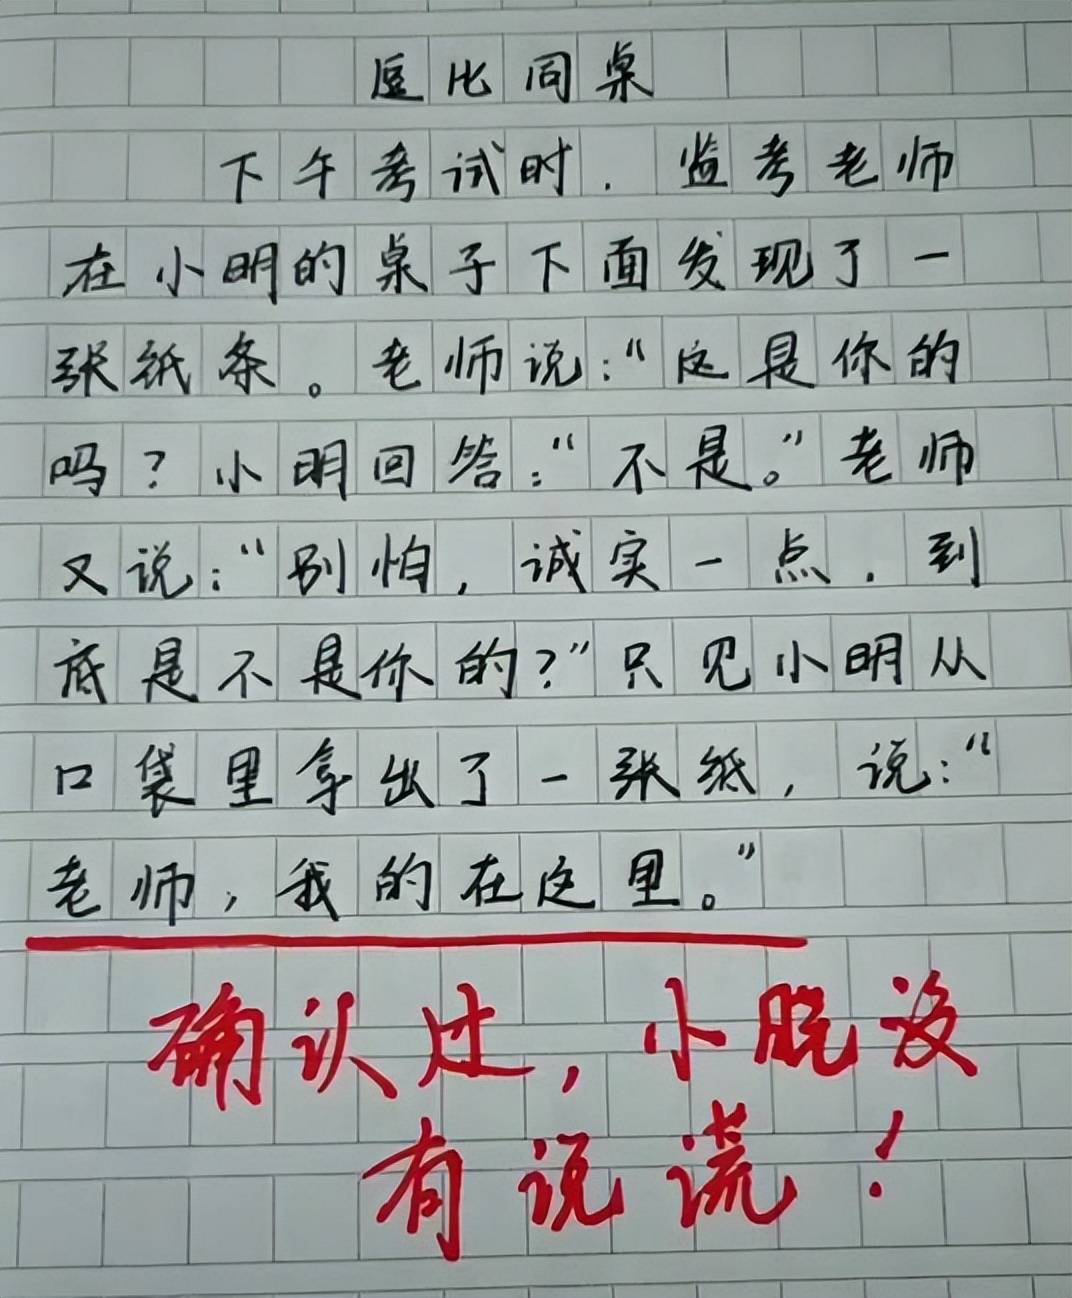 逗比同桌
下午考试时，监考老师
在小明的桌子下面发现了一
张纸条。老师说：“这是你的
吗？小明回答：“不是。”老师
又说：“别怕，诚实一点，到
底是不是你的？”只见小明从
口袋里拿出了一张纸，说：“
老师，我的在这里。”
确认过，小脱没
有说谎！